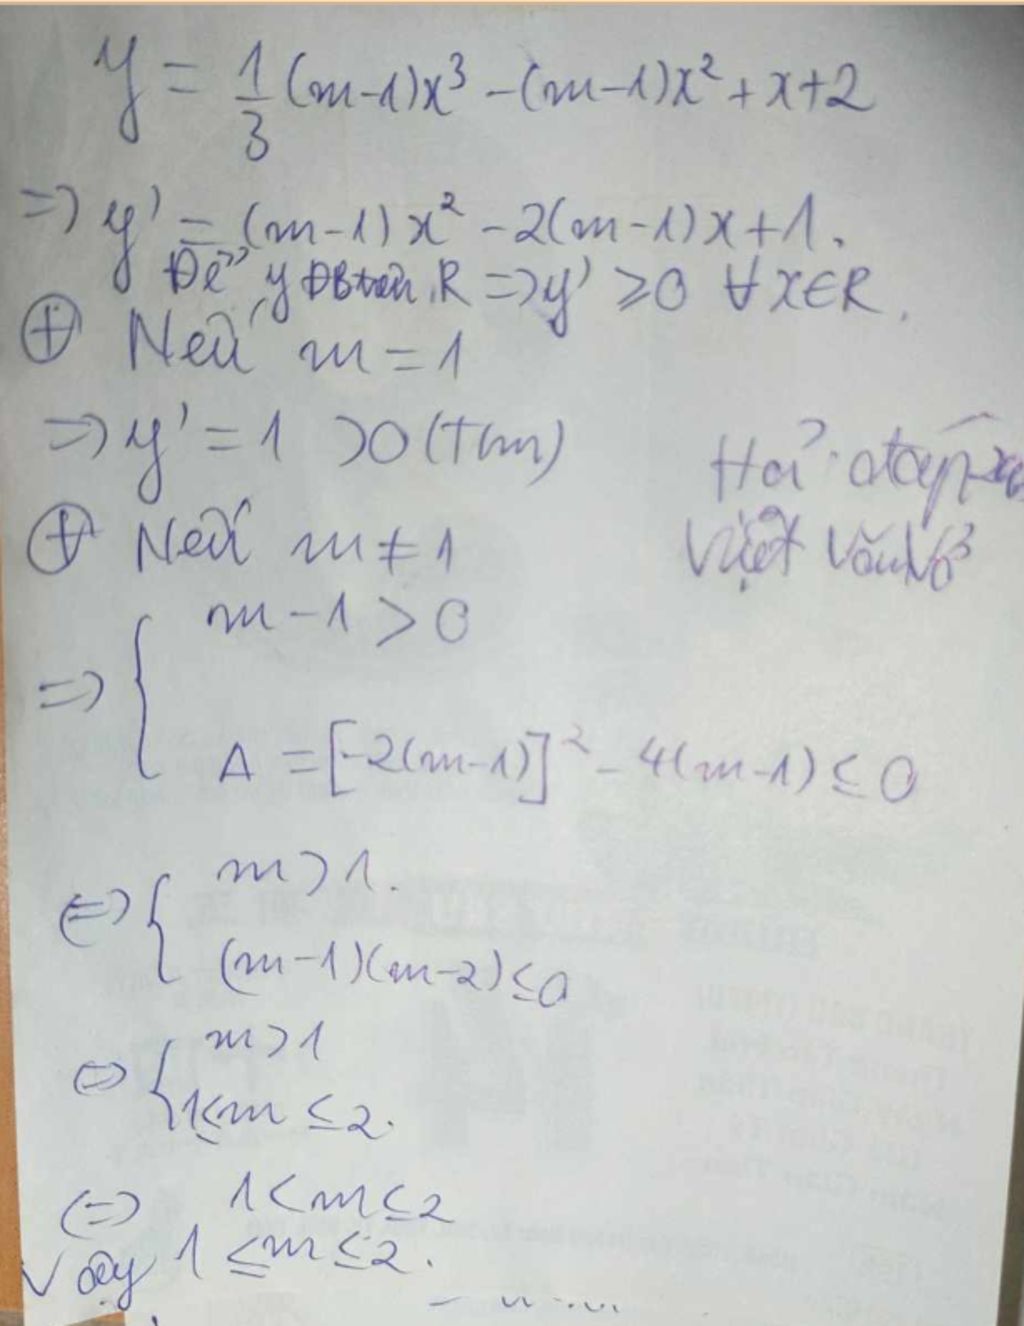 y = 1/3 (m-1)x³ - (m-1)x² + x + 2
=> y' = (m-1)x² - 2(m-1)x + 1.
Để y ĐB trên R => y' ≥ 0 ∀x∈R.
⊕ Nếu m = 1
=> y' = 1 > 0 (tm)
⊕ Nếu m ≠ 1
=> { m - 1 > 0
Δ = [-2(m-1)]² - 4(m-1) ≤ 0
<=> { m > 1.
(m-1)(m-2) ≤ 0
<=> { m > 1
1 ≤ m ≤ 2.
<=> 1 < m ≤ 2
Vậy 1 ≤ m ≤ 2.
Việt